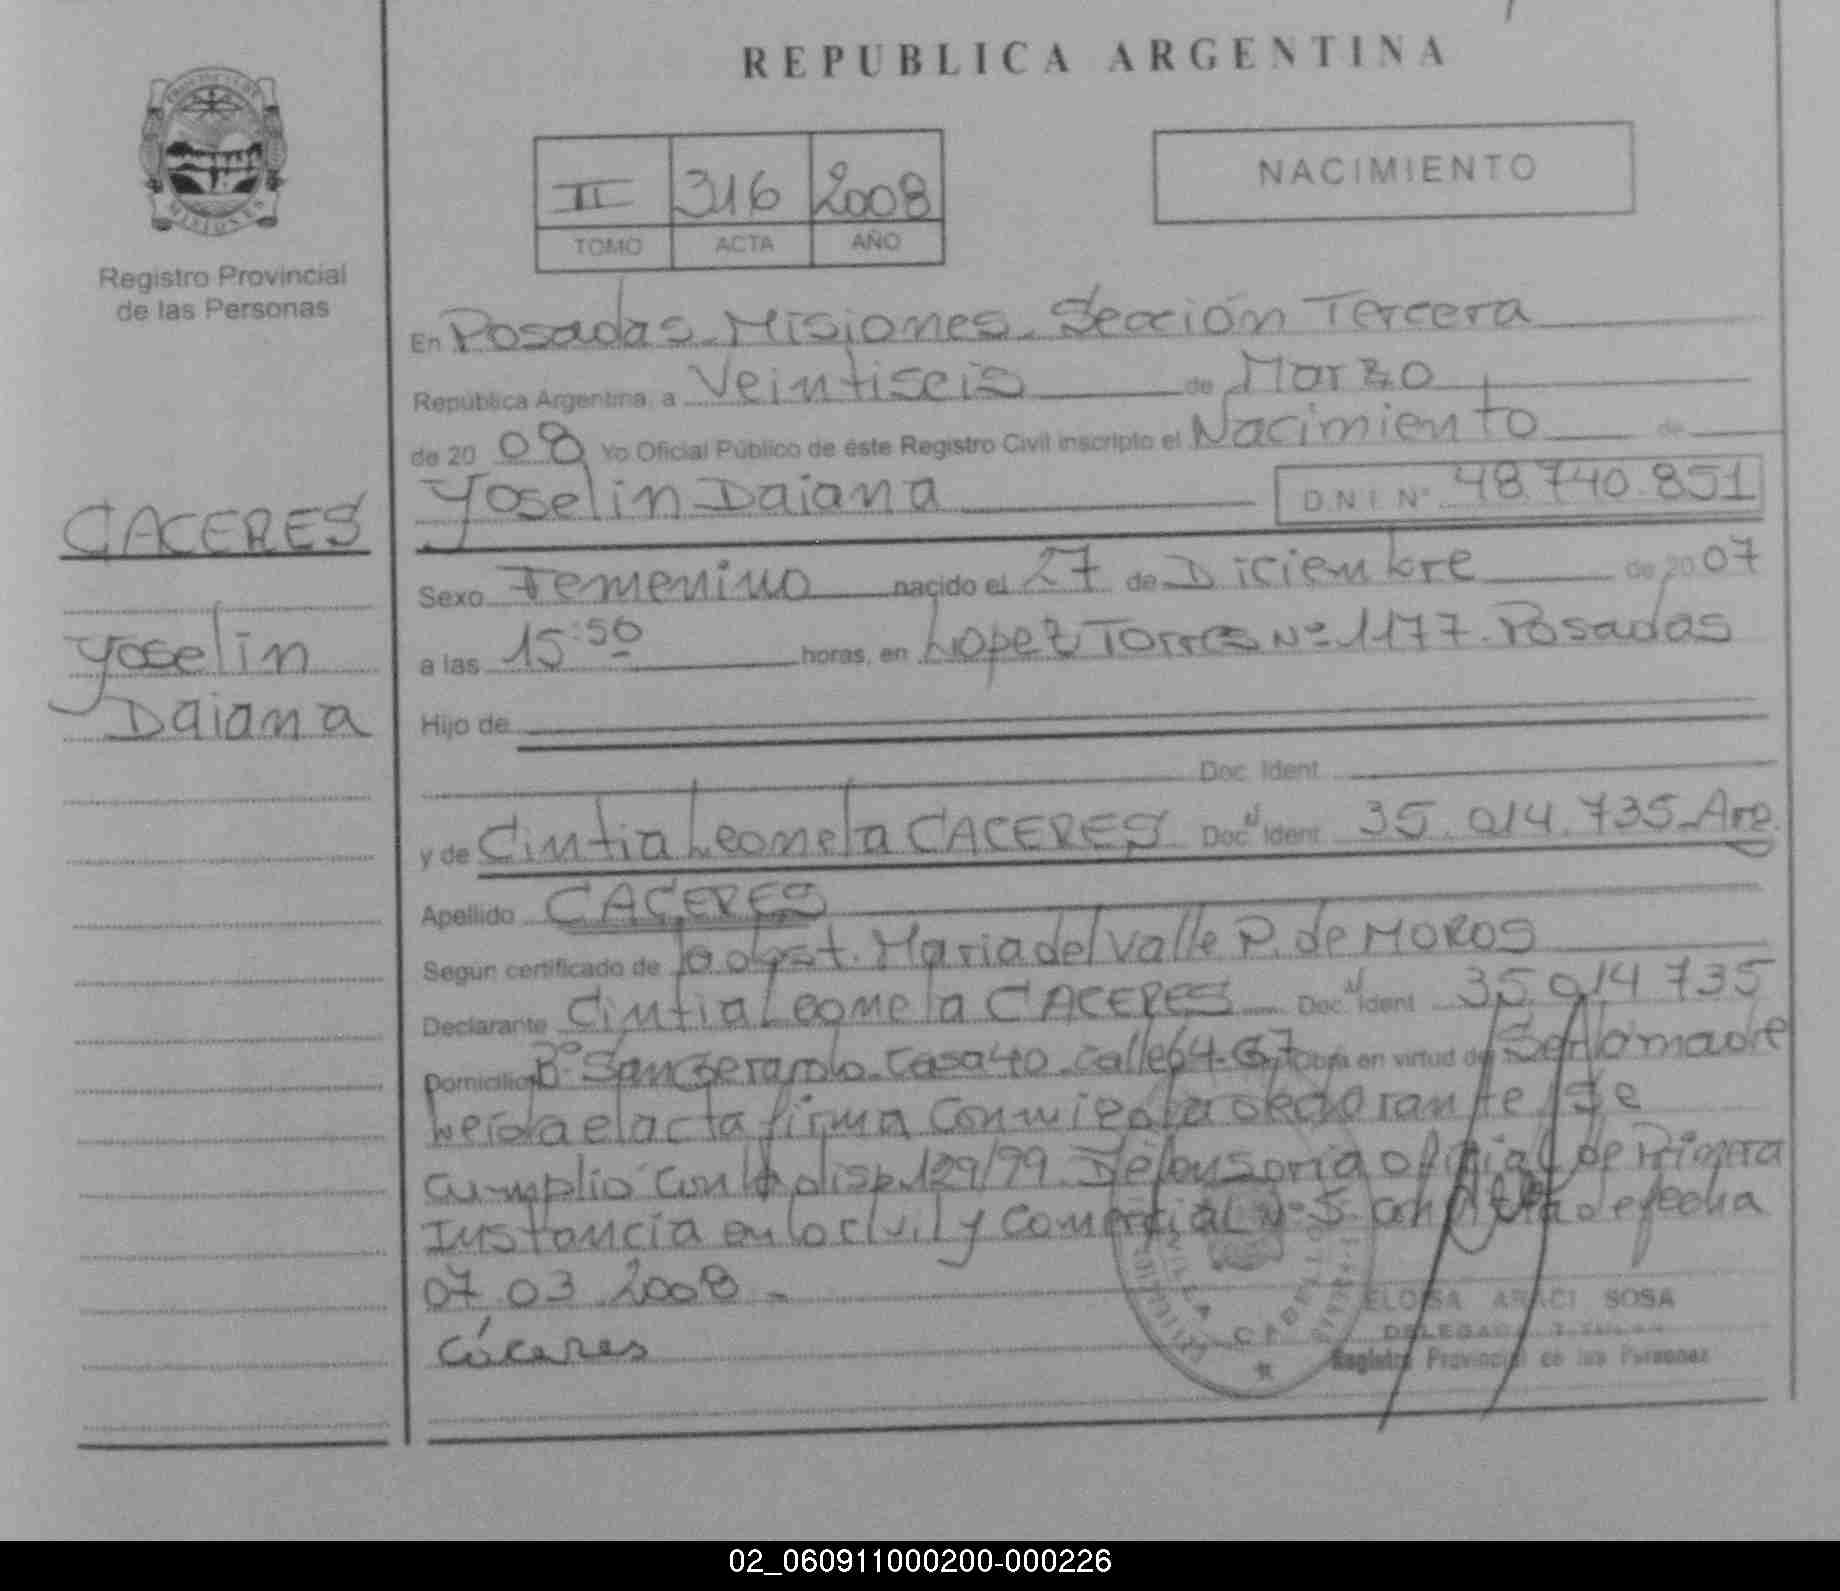 REPUBLICA ARGENTINA
II 316 2008
TOMO ACTA AÑO
NACIMIENTO
MISIONES
Registro Provincial
de las Personas
CACERES
Yoselin
Daiana
En Posadas - Misiones - Sección Tercera
República Argentina, a Veintiseis de Marzo
de 20 08 Yo Oficial Público de éste Registro Civil inscripto el Nacimiento de
Yoselin Daiana D.N.I. Nº 48.740.851
Sexo Femenino nacido el 27 de Diciembre de 20 07
a las 15:50 horas, en Lopez Torres Nº 1177. Posadas
Hijo de
Doc. Ident.
y de Cintia Leonela CACERES Doc. Ident. 35.014.735 Arg.
Apellido CACERES
Según certificado de la obst. Maria del Valle P. de MOROS
Declarante Cintia Leonela CACERES Doc. Ident. 35 014 735
Domicilio Bº San Gerardo - casa 40 - calle 64 - Obra en virtud de Ser la madre
Leída el acta firma Conmigo la declarante Se
cumplio con la disp. 129/99. Defensoría oficial de Primera
Instancia en lo civil y Comercial Nº 5 de fecha
07 03 2008 -
Cáceres
ELOISA ARACI SOSA
DELEGADA
Registro Provincial de las Personas
02_060911000200-000226